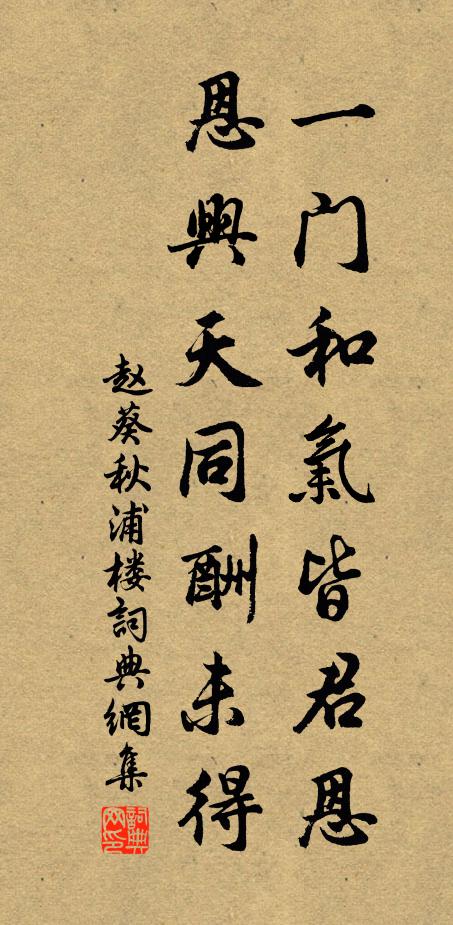 一门和氣皆君恩
恩與天同酬未得
赵葵秋浦楼詞典網集
詞典网印